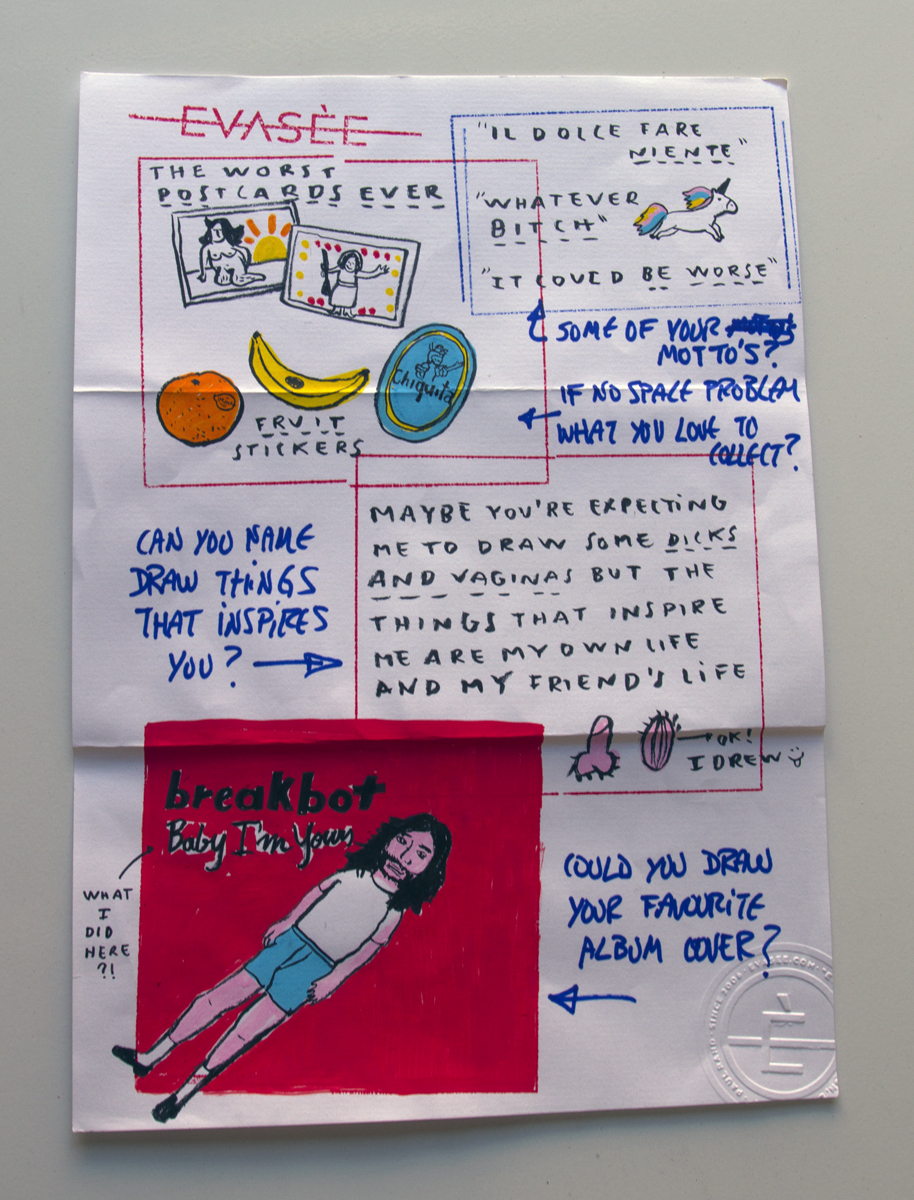 EVASÈE
THE WORST
POSTCARDS EVER
"IL DOLCE FARE
NIENTE"
"WHATEVER
BITCH"
"IT COULD BE WORSE"
SOME OF YOUR
MOTTO'S?
IF NO SPACE PROBLEM
WHAT YOU LOVE TO
COLLECT?
Chiquita
FRUIT
STICKERS
CAN YOU NAME
DRAW THINGS
THAT INSPIRES
YOU?
MAYBE YOU'RE EXPECTING
ME TO DRAW SOME DICKS
AND VAGINAS BUT THE
THINGS THAT INSPIRE
ME ARE MY OWN LIFE
AND MY FRIEND'S LIFE
OK!
I DREW
breakbot
Baby I'm Yours
WHAT
I
DID
HERE
?!
COULD YOU DRAW
YOUR FAVOURITE
ALBUM COVER?